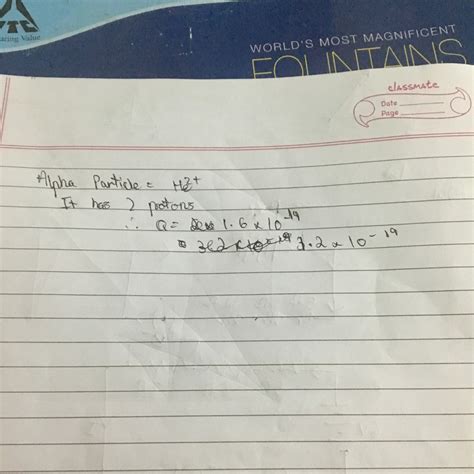 VTC
acing Value
WORLD'S MOST MAGNIFICENT
FOUNTAINS
classmate
Date
Page
Alpha Particle = He2+
It has 2 protons
∴ Q = 1.6 x 10-19
= 3.2 x 10-19